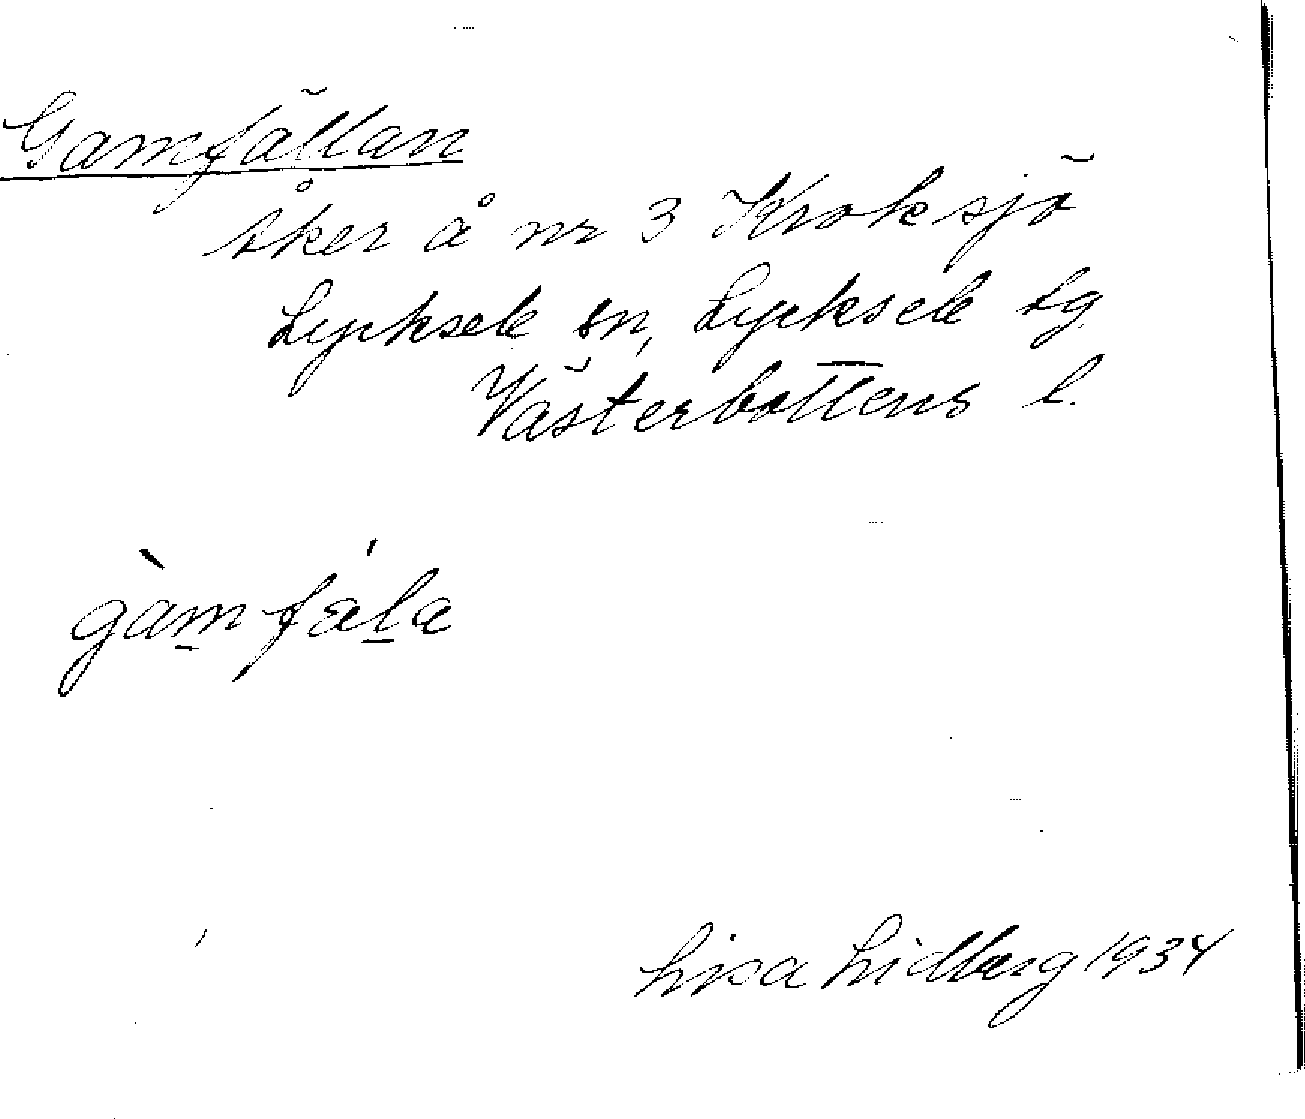 Gamfällan
åker å nr 3 Kroksjö
Lycksele sn, Lycksele tg
Västerbottens l.
gàm fä́la
Lisa Lidberg 1934